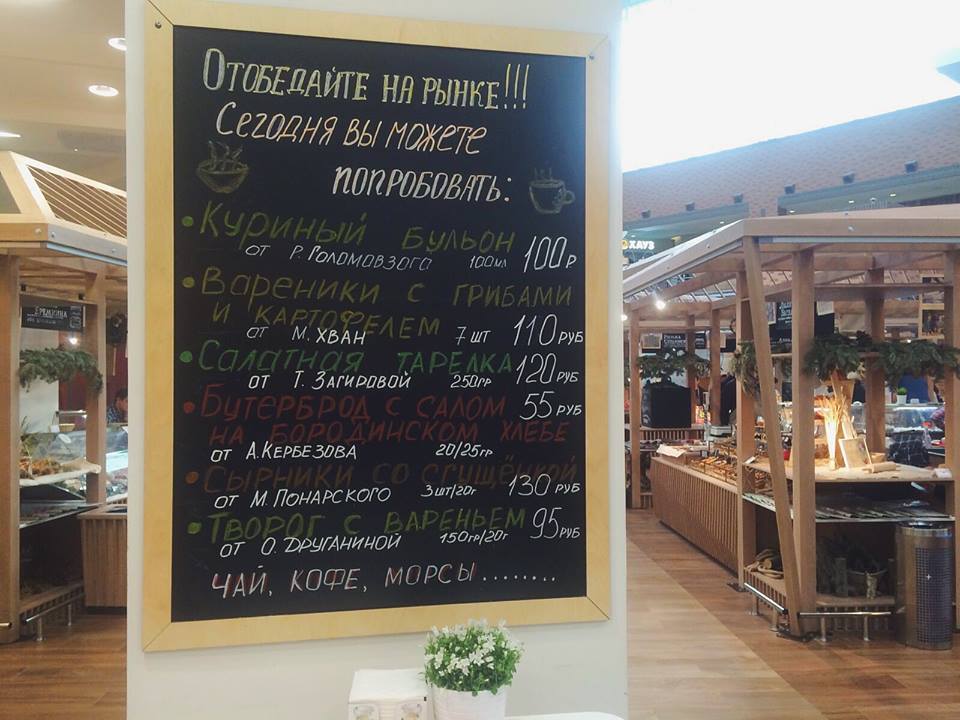 Отобедайте на рынке!!!
Сегодня вы можете
попробовать:
• Куриный бульон
от Р. Роломавзога 100мл 100р
• Вареники с грибами
и картофелем
от М. Хван 7 шт 110 руб
• Салатная тарелка
от Т. Загировой 250гр 120 руб
• Бутерброд с салом 55 руб
на бородинском хлебе
от А. Кербезова 20/25гр
• Сырники со сгущёнкой
от М. Понарского 3шт/20г 130 руб
• Творог с вареньем
от О. Друганиной 150гр/20г 95 руб
Чай, кофе, морсы........
ХАУЗ